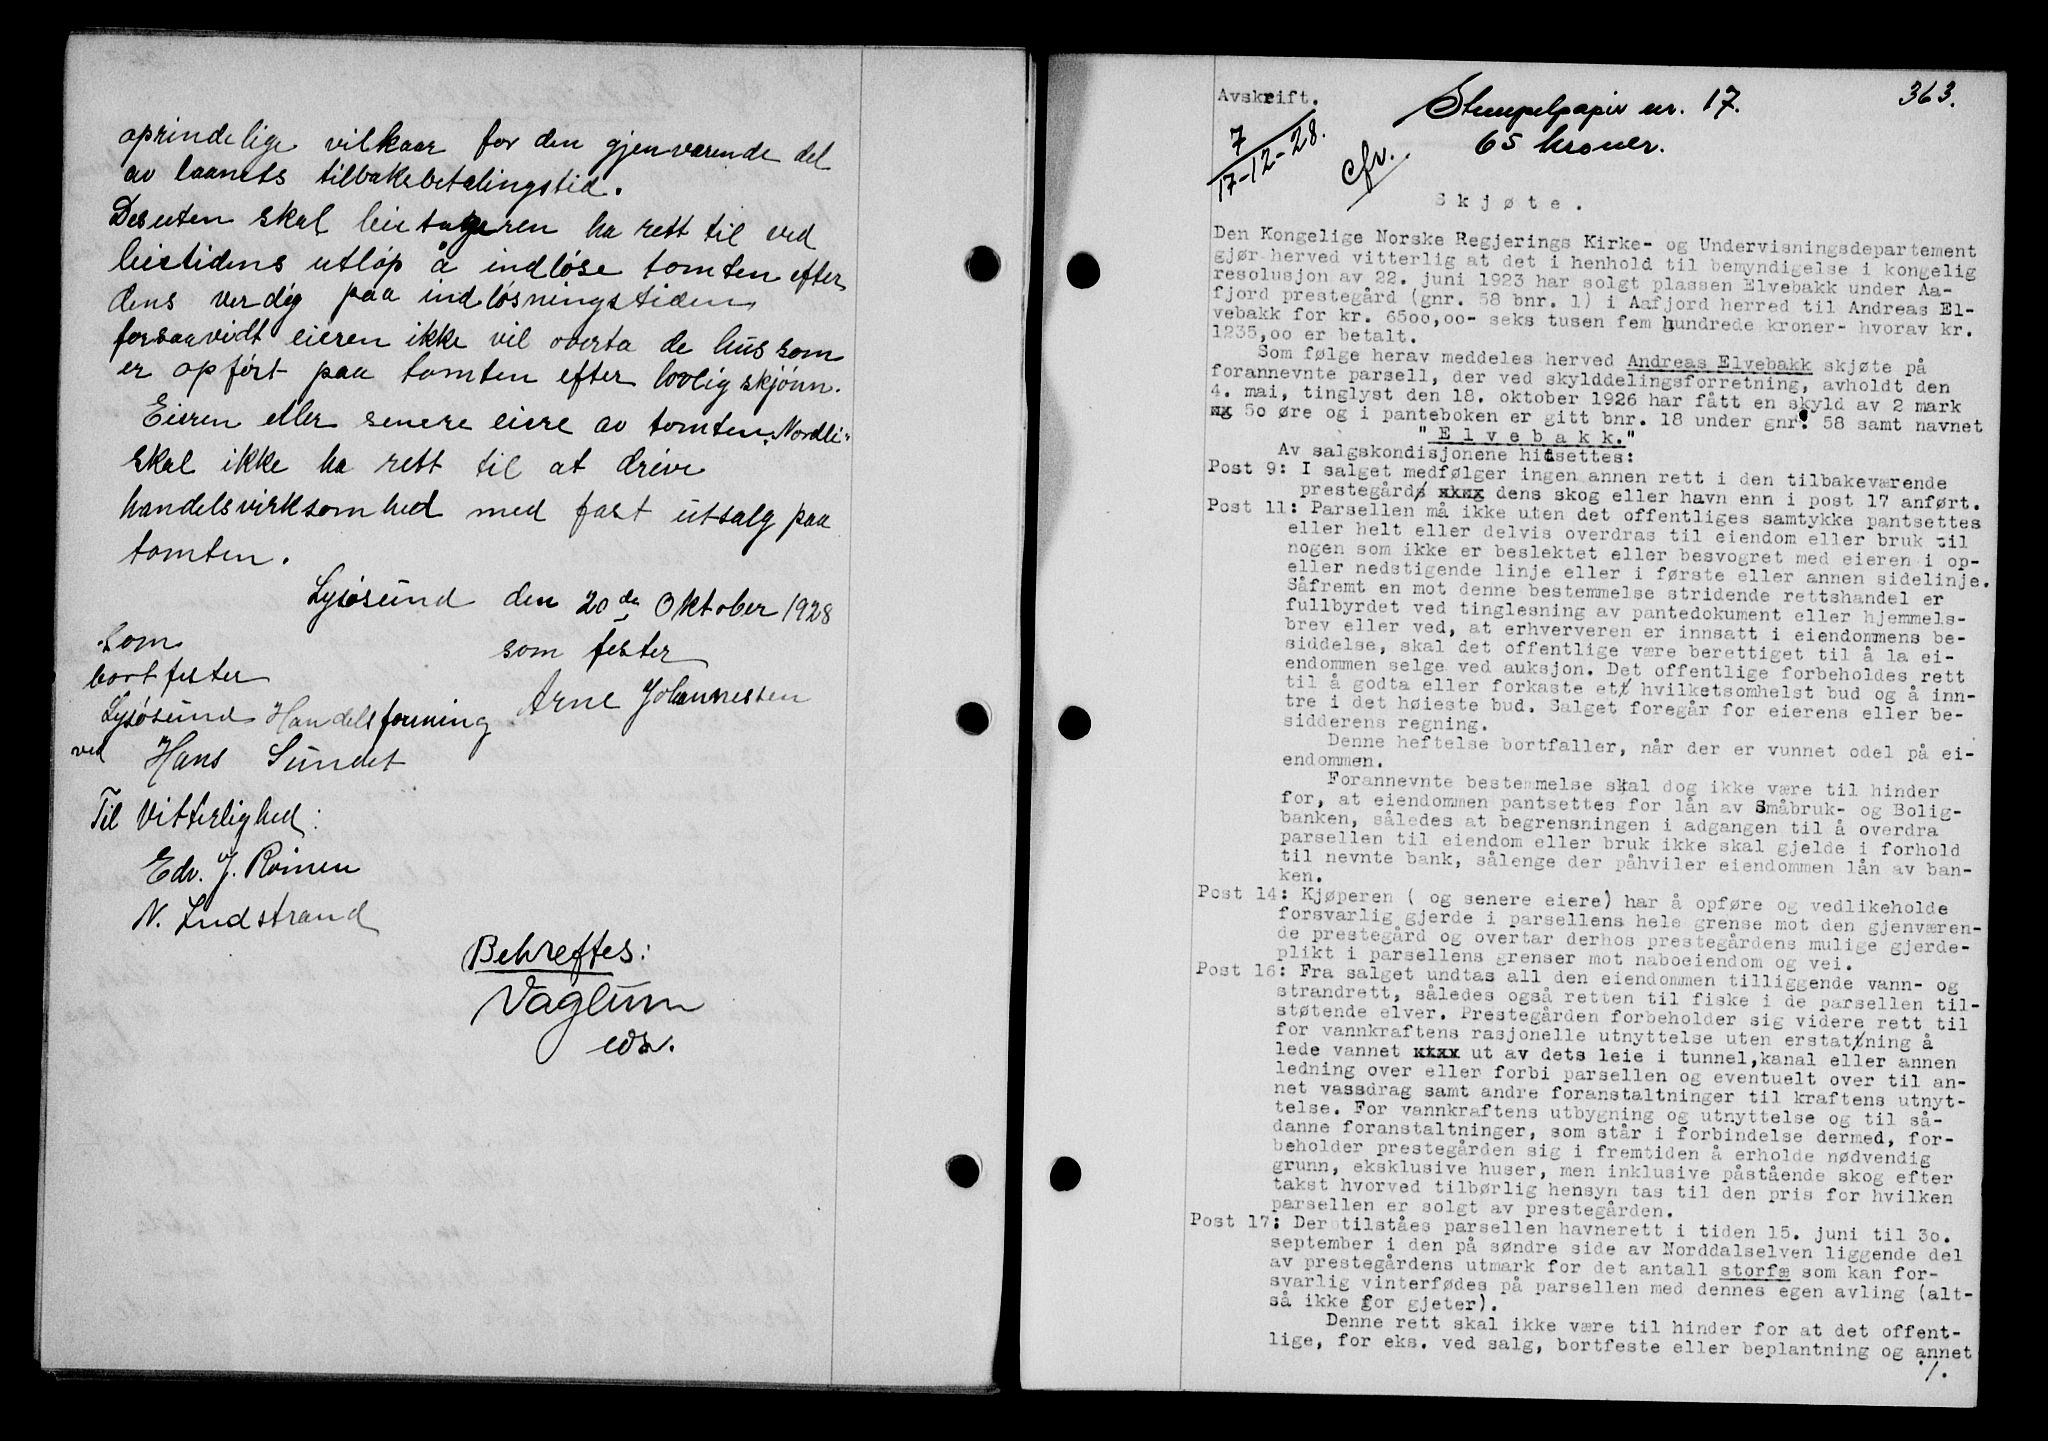 oprindelige vilkaar for den gjenværende del
av laanets tilbakebetalingstid.
Desuten skal leietageren ha rett til ved
leietidens utløp å indløse tomten efter
dens verdig paa indløsningstiden
forsaavidt eieren ikke vil overta de hus som
er opført paa tomten efter lovlig skjönn.
Eieren eller senere eiere av tomten „Nordli"
skal ikke ha rett til at drive
handelsvirksomhed med fast utsalg paa
tomten.
Lysøsund den 20de Oktober 1928
som
bortfester
som fester
Lysøsund Handelsforening
Arne Johannessen
ved Hans Sundet
Til Vitterlighed:
Edv. J. Roinen
N. Indstrand
Behreftes:
Vaglum
eds.
363.
Avskrift.
Stempelpapir nr. 17.
65 kroner.
7
17-12-28.
cfr.
Skjøte.
Den Kongelige Norske Regjerings Kirke- og Undervisningsdepartement
gjør herved vitterlig at det i henhold til bemyndigelse i kongelig
resolusjon av 22. juni 1923 har solgt plassen Elvebakk under Aa-
fjord prestegård (gnr. 58 bnr. 1) i Aafjord herred til Andreas El-
vebakk for kr. 6500,00- seks tusen fem hundrede kroner- hvorav kr.
1235,00 er betalt.
Som følge herav meddeles herved Andreas Elvebakk skjøte på
forannevnte parsell, der ved skylddelingsforretning, avholdt den
4. mai, tinglyst den 18. oktober 1926 har fått en skyld av 2 mark
xg 50 øre og i panteboken er gitt bnr. 18 under gnr. 58 samt navnet
"Elvebakk."
Av salgskondisjonene hidsettes:
Post 9: I salget medfølger ingen annen rett i den tilbakeværende
prestegårds xxxx dens skog eller havn enn i post 17 anført.
Post 11: Parsellen må ikke uten det offentliges samtykke pantsettes
eller helt eller delvis overdras til eiendom eller bruk til
nogen som ikke er beslektet eller besvogret med eieren i op-
eller nedstigende linje eller i første eller annen sidelinje.
Såfremt en mot denne bestemmelse stridende rettshandel er
fullbyrdet ved tinglesning av pantedokument eller hjemmels-
brev eller ved, at erhververen er innsatt i eiendommens be-
siddelse, skal det offentlige være berettiget til å la ei-
endommen selge ved auksjon. Det offentlige forbeholdes rett
til å godta eller forkaste ett hvilketsomhelst bud og å inn-
tre i det høieste bud. Salget foregår for eierens eller be-
sidderens regning.
Denne heftelse bortfaller, når der er vunnet odel på ei-
endommen.
Forannevnte bestemmelse skal dog ikke være til hinder
for, at eiendommen pantsettes for lån av Småbruk- og Bolig-
banken, således at begrensningen i adgangen til å overdra
parsellen til eiendom eller bruk ikke skal gjelde i forhold
til nevnte bank, sålenge der påhviler eiendommen lån av ban-
ken.
Post 14: Kjøperen ( og senere eiere) har å opføre og vedlikeholde
forsvarlig gjerde i parsellens hele grense mot den gjenværen-
de prestegård og overtar derhos prestegårdens mulige gjerde-
plikt i parsellens grenser mot naboeiendom og vei.
Post 16: Fra salget undtas all den eiendommen tilliggende vann- og
strandrett, således også retten til fiske i de parsellen til-
støtende elver. Prestegården forbeholder sig videre rett til
for vannkraftens rasjonelle utnyttelse uten erstattning å
lede vannet xxxx ut av dets leie i tunnel,kanal eller annen
ledning over eller forbi parsellen og eventuelt over til an-
net vassdrag samt andre foranstaltninger til kraftens utnyt-
telse. For vannkraftens utbygning og utnyttelse og til så-
danne foranstaltninger, som står i forbindelse dermed, for-
beholder prestegården sig i fremtiden å erholde nødvendig
grunn, eksklusive huser, men inklusive påstående skog efter
takst hvorved tilbørlig hensyn tas til den pris for hvilken
parsellen er solgt av prestegården.
Post 17: Der tilståes parsellen havnerett i tiden 15. juni til 30.
september i den på søndre side av Norddalselven liggende del
av prestegårdens utmark for det antall storfæ som kan for-
svarlig vinterfødes på parsellen med dennes egen avling (alt-
så ikke for gjeter).
Denne rett skal ikke være til hinder for at det offent-
lige, for eks. ved salg, bortfeste eller beplantning og annet
./.